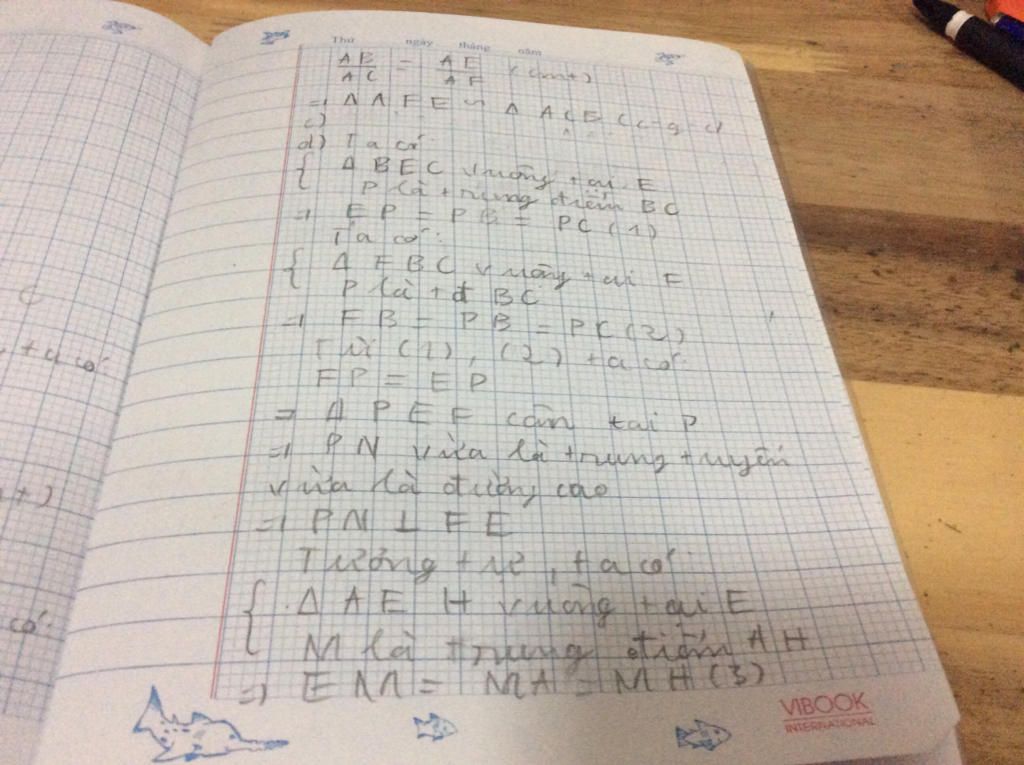 Thứ ngày tháng năm
AB/AC = AE/AF (cmt)
=> Δ AFE ∽ Δ ACB (c-g-c)
c)
d) Ta có
{ Δ BEC vuông tại E
P là trung điểm BC
=> EP = PB = PC (1)
Ta có:
{ Δ FBC vuông tại F
P là tđ BC
=> FB = PB = PC (2)
Từ (1), (2) ta có:
FP = EP
=> Δ PEF cân tại P
=> PN vừa là trung tuyến
vừa là đường cao
=> PN ⊥ FE
Tương tự, ta có:
{ Δ AEH vuông tại E
M là trung điểm AH
=> EM = MA = MH (3)
C
, ta có
có:
VIBOOK
INTERNATIONAL